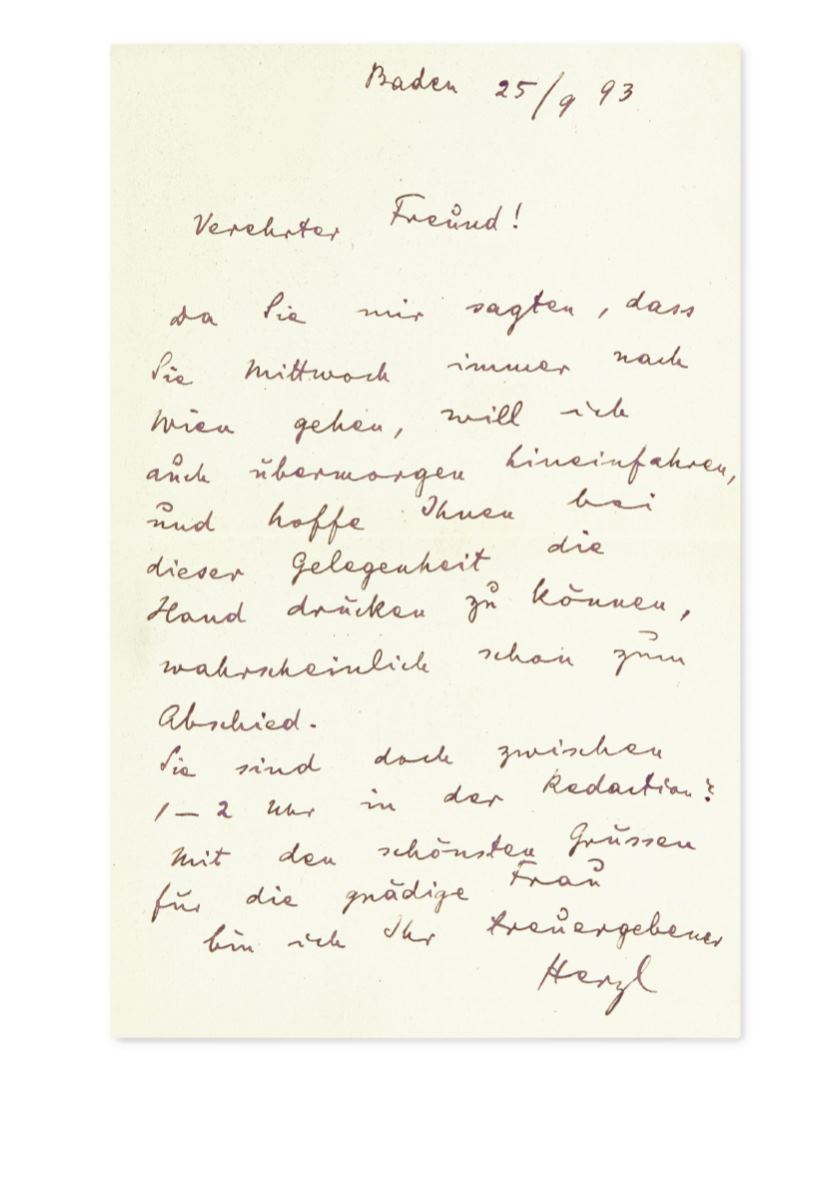 Baden 25/9 93
Verehrter Freund!
Da Sie mir sagten, dass
Sie Mittwoch immer nach
Wien gehen, will ich
auch übermorgen hineinfahren,
und hoffe Ihnen bei
dieser Gelegenheit die
Hand drücken zu können,
wahrscheinlich schon zum
Abschied.
Sie sind doch zwischen
1–2 Uhr in der Redaction?
Mit den schönsten Grüssen
für die gnädige Frau
bin ich Ihr treuergebener
Herzl